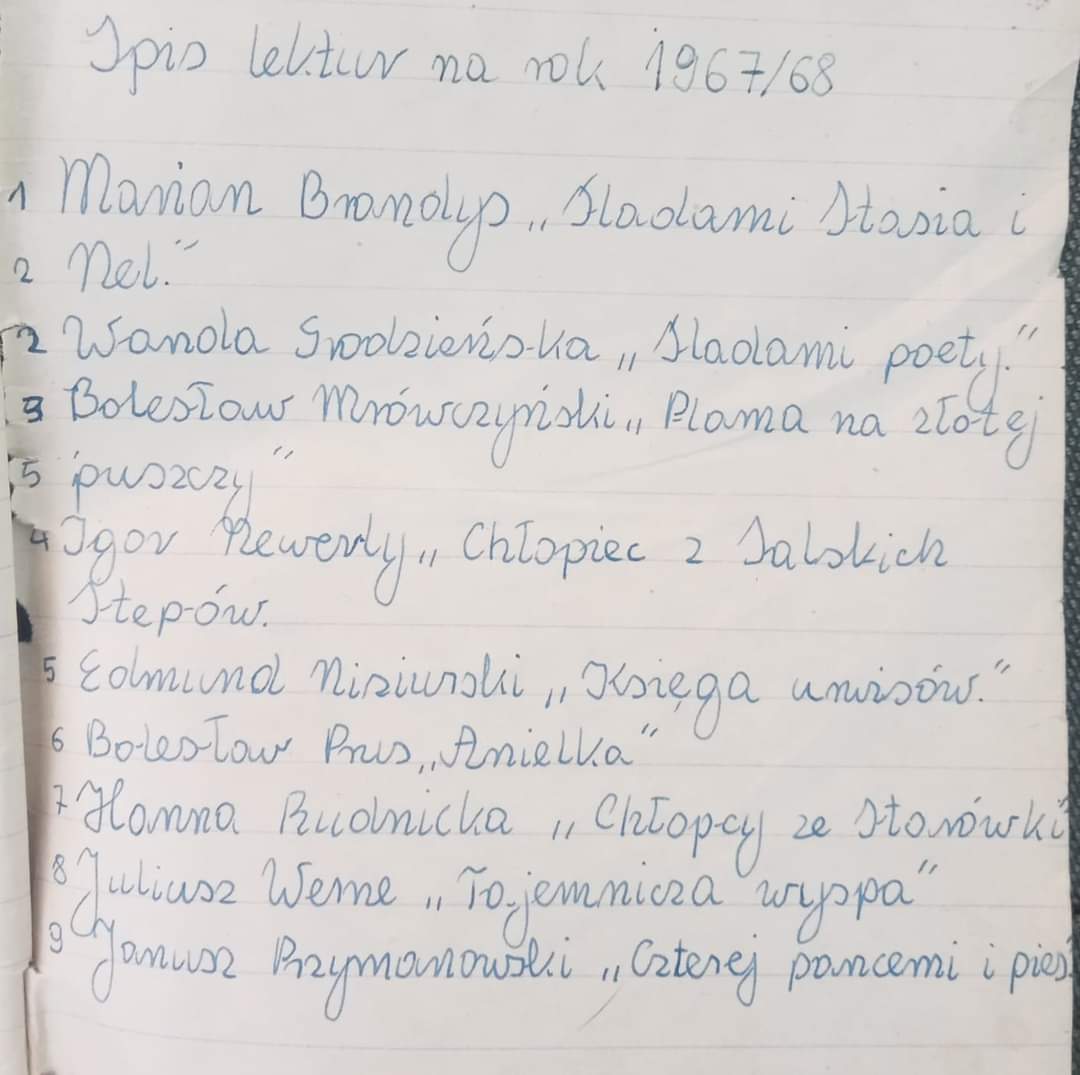 Spis lektur na rok 1967/68
1 Marian Brandys „Śladami Stasia i
2 Nel."
2 Wanda Grodzieńska „Śladami poety."
3 Bolesław Mrówczyński „Plama na złotej
5 puszczy"
4 Igor Newerly „Chłopiec z Salskich
Stepów.
5 Edmund Niziurski „Księga urwisów."
6 Bolesław Prus „Anielka"
7 Hanna Rudnicka „Chłopcy ze Starówki"
8 Juliusz Werne „Tajemnicza wyspa"
9 Janusz Przymanowski „Czterej pancerni i pies